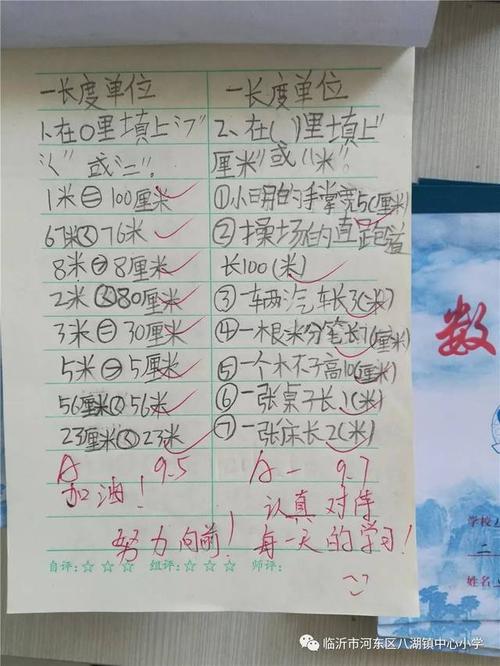 一长度单位
1、在〇里填上“>”
“<”或“=”。
1米=100厘米
67米<76米
8米=8厘米
2米<80厘米
3米=30厘米
5米=5厘米
56厘米<56米
23厘米<23米
A 9.5
加油!
努力向前!
一长度单位
2、在( )里填上“
厘米”或“米”。
①小明的手掌宽5(厘米)
②操场的直跑道
长100(米)
③一车两汽车长3(米)
④一根米分笔长7(厘米)
⑤一个木不子高10(厘米)
⑥一张桌子长1(米)
⑦一张床长2(米)
A- 9.7
认真对待
每一天的学习!
自评:☆☆☆ 组评:☆☆☆ 师评:
数
学校
二
姓名
临沂市河东区八湖镇中心小学